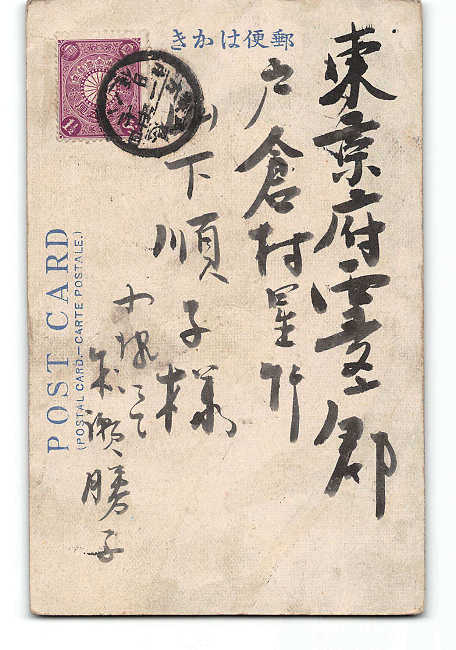 郵便はかき
東京府西多摩郡
戸倉村星竹
山下順子様
勝子
POST CARD
(POSTAL CARD.—CARTE POSTALE.)